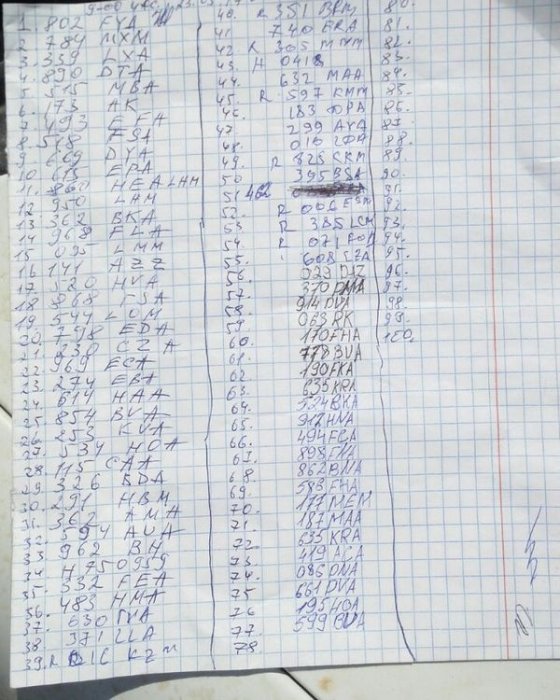 1. 802 FYA
2. 784 MXM
3. 339 LXA
4. 890 DTA
5. 515 MBA
6. 173 AK
7. 493 EFA
8. 518 FSA
9. 669 DYA
10. 615 EPA
11. 860 HEALAM
12. 950 LHM
13. 362 BKA
14. 968 FLA
15. 095 LMM
16. 141 AZZ
17. 520 HVA
18. 868 FSA
19. 544 LOM
20. 798 EDA
21. 230 CZA
22. 969 ECA
23. 274 EBA
24. 614 HAA
25. 854 BVA
26. 253 KVA
27. 534 HOA
28. 115 CAA
29. 326 BDA
30. 291 HBM
31. 362 AMA
32. 594 AUA
33. 962 BH
34. H750959
35. 332 FEA
36. 483 HMA
37. 630
38. 371 LLA
39. R KZM
40. R 351
41. 740 FRA
42. R 305
43. H 0418
44. 632 MAA
45. R 597 KMM
46. 183 DPA
47. 299 AYA
48. 016
49. R 825 CKM
50. 395 BSA
51. 462
52. R 006
53. R 385 LCM
54. R 021
55. 608 CZA
56. 023 DIZ
57. 370 DMA
58. 914 DVA
59. 033 RK
60. 170 FHA
61. 778 BVA
62. 190 FKA
63. 635 KRA
64. 524 BYA
65. 912 HNA
66. 494 FCA
67. 898 FNA
68. 862 BNA
69. 583 FHA
70. 177 MEM
71. 187 MAA
72. 635 KRA
73. 419 ACA
74. 086 DNA
75. 661 DVA
76. 195 HOA
77. 599 CVA
78.
80.
81.
82.
83.
84.
85.
86.
87.
88.
89.
90.
91.
92.
93.
94.
95.
96.
97.
98.
99.
100.